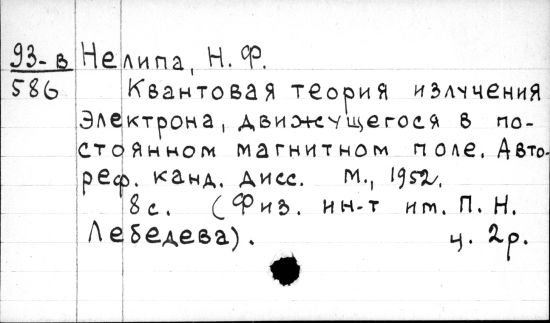 93-в Нелипа, Н. Ф.
586 Квантовая теория излучения
электрона, движущегося в по-
стоянном магнитном поле. Авто-
реф. канд. дисс. М., 1952.
8 с. (Физ. ин-т им. П. Н.
Лебедева). ц. 2р.